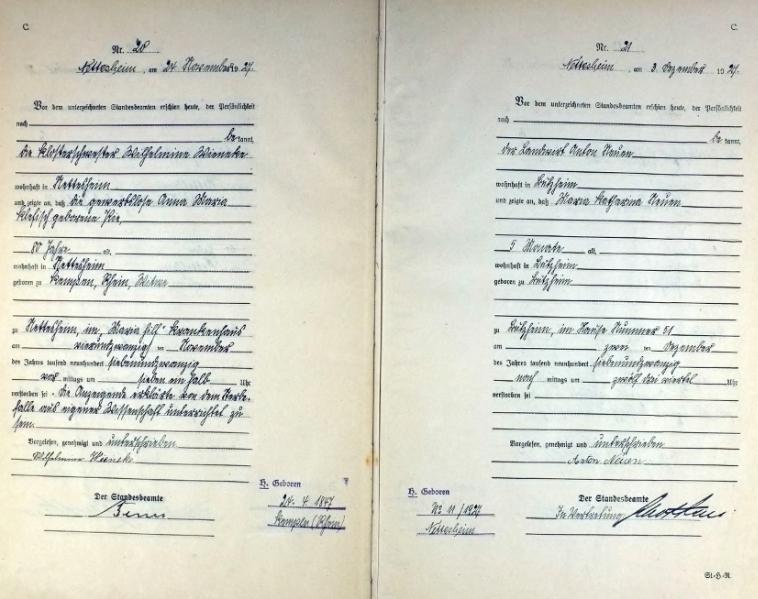 C.
Nr. 20
Nettesheim, am 24 November 1927.
Vor dem unterzeichneten Standesbeamten erschien heute, der Persönlichkeit
nach
bekannt,
die Klosterschwester Wilhelmine Wieneke
wohnhaft in Nettesheim
und zeigte an, daß die gewerblose Anna Maria
geborene
80 Jahre alt,
wohnhaft in Nettesheim
geboren zu Kempen, Rhein, Witwe
zu Nettesheim, im "Maria hilf" Krankenhaus
am vierundzwanzigsten November
des Jahres tausend neunhundert siebenundzwanzig
vormittags um sieben ein halb Uhr
verstorben sei. Die Anzeigende erklärte von dem Sterbe-
falle aus eigener Wissenschaft unterrichtet zu
sein.
Vorgelesen, genehmigt und unterschrieben
Wilhelmine
Der Standesbeamte
H. Geboren
24. 4. 1847
Kempen (Rhein)
C.
Nr. 21
Nettesheim, am 3. Dezember 1927.
Vor dem unterzeichneten Standesbeamten erschien heute, der Persönlichkeit
nach
bekannt,
der Landwirt Anton Neuen
wohnhaft in Bützheim
und zeigte an, daß Maria Katharina Neuen
5 Monate alt,
wohnhaft in Bützheim
geboren zu Bützheim
zu Bützheim, im Hause Nummer 51
am zwei ten Dezember
des Jahres tausend neunhundert siebenundzwanzig
nachmittags um zwölf drei viertel Uhr
verstorben sei
Vorgelesen, genehmigt und unterschrieben
Anton Neuen
Der Standesbeamte
In Vertretung
H. Geboren
Nr 11/1927
Nettesheim
St-H-R.